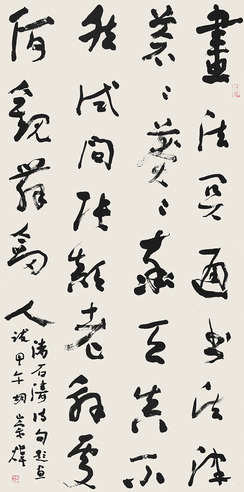 畫法関通書法津
蒼〻莽〻率天真不
然試問張顛老解處
何觀舞劍人
石濤詩句題畫
詩甲午胡崇煒